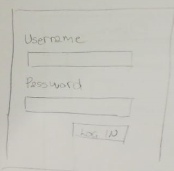 Username
Password
LOG IN